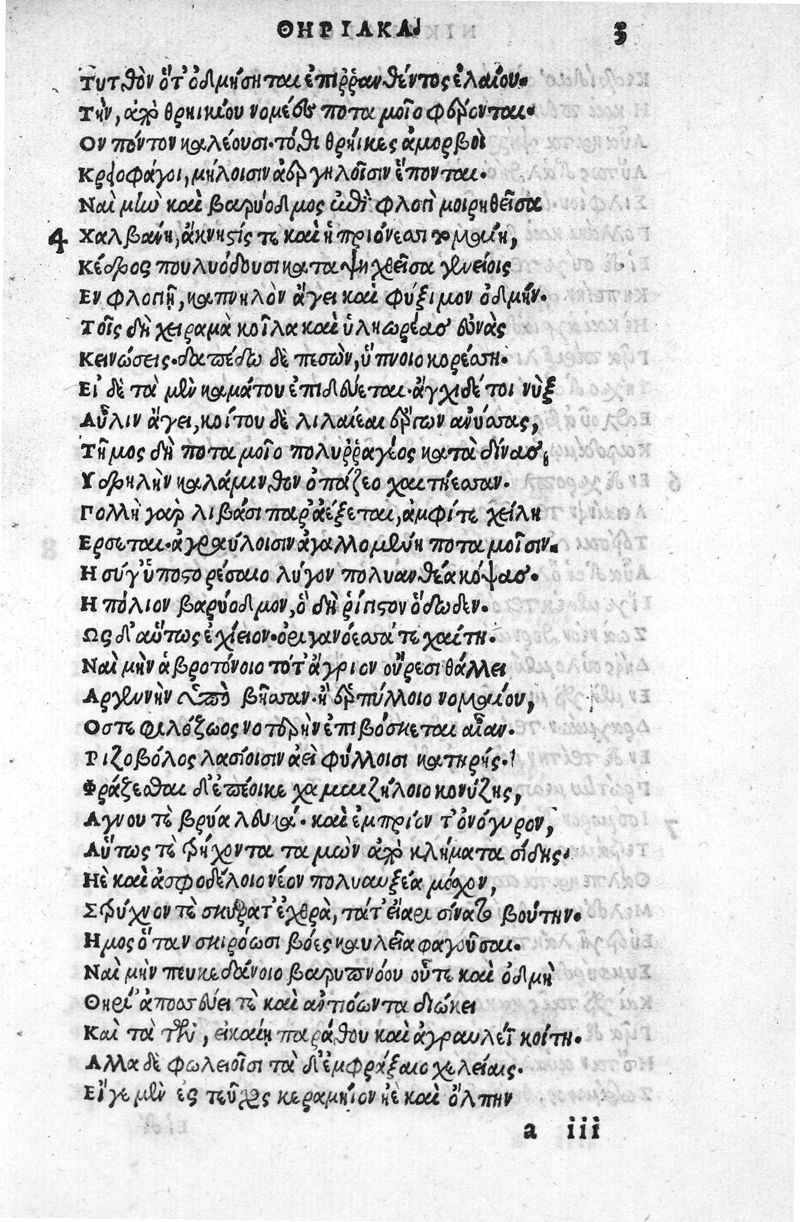 ΘΗΡΙΑΚΑ 3
Τυτθὸν ὅτ' ὀδμήσηται ἐπιῤῥανθέντος ἐλαίου.
Τὴν, ἀπὸ θρηικίου νομέες ποταμοῖο φέρονται.
Ον πόντον καλέουσι. τόθι θρήικες ἀμορβοὶ
Κριοφάγοι, μήλοισιν ἀεργηλοῖσιν ἕπονται.
Ναὶ μὴν καὶ βαρύοδμος ἐπὶ φλογὶ μοιρηθεῖσα
4 Χαλβανη, ἄκνηστίς τε καὶ ἡ πριόνεσσι τομαίη,
Κέδρος πουλυόδουσι καταψηχθεῖσα γενείοις
Εν φλογιῇ, καπνηλὸν ἄγει καὶ φύξιμον ὀδμήν.
Τοῖς δὴ χειραμὰ κοῖλα καὶ ὑληωρέας εὐνὰς
Κεινώσεις. δαπέδω δὲ πεσὼν, ὕπνοιο κορέσση.
Εἰ δὲ τὰ μὲν καμάτου ἐπιδεύεται. ἄγχι δέ τοι νὺξ
Αὖλιν ἄγει, κοίτου δὲ λιλαίεαι ἔργον ἀνύσσας,
Τῆμος δὴ ποταμοῖο πολυῤῥαγέος κατὰ δίνας,
Υδρηλὴν καλάμινθον ὀπάζεο χαιτήεσσαν.
Πολλὴ γὰρ λιβάσι παραέξεται, ἀμφί τε χείλη
Ερσεται. ἀγραύλοισιν ἀγαλλομένη ποταμοῖσιν.
Η σύγ' ὑποστορέσαιο λύγον πολυανθέα κόψας.
Η πόλιον βαρύοδμον, ὃ δὴ ῥίγιστον ὄδωδεν.
Ως δ' αὔτως ἐχίειον. ὀριγανόεσσά τε χαίτη.
Ναὶ μὴν ἀβροτόνοιο τότ' ἄγριον οὔρεσι θάλλει
Αργεννὴν ὑπὸ βῆσσαν. ἢ ἑρπύλλοιο νομαίου,
Οστε φιλόζωος νοτερὴν ἐπιβόσκεται αἶαν.
Ριζοβόλος λασίοισιν ἀεὶ φύλλοισι κατηρής.
Φράζεσθαι δ' ἐπέοικε χαμαιζήλοιο κονύζης,
Αγνου τε βρύα λευκά. καὶ ἐμπρίον τ' ὀνόγυρον,
Αὕτως τε τρήχοντα ταμὼν ἀπὸ κλήματα σίδης.
Ηὲ καὶ ἀσφοδέλοιο νέον πολυαυξέα μόσχον,
Στρύχνον τε σκύρα τ' ἐχθρὰ, τάτ' εἴαρι σίνατο βούτην.
Ημος ὅταν σκιρόωσι βόες καυλεῖα φαγοῦσαι.
Ναὶ μὴν πευκεδάνοιο βαρυπνόου οὔτε καὶ ὀδμὴ
Θηρί' ἀποσσεύει τε καὶ ἀντιόωντα διώκει
Καὶ τὰ μὲν, εἰκαίη παράθου καὶ ἀγραυλέϊ κοίτη.
Αλλα δὲ φωλειοῖσι τὰ δ' ἐμφράξαιο χελείαις.
Εἴγε μὲν ἐς τεῦχος κεραμήιον ἠὲ καὶ ὄλπην
a iii